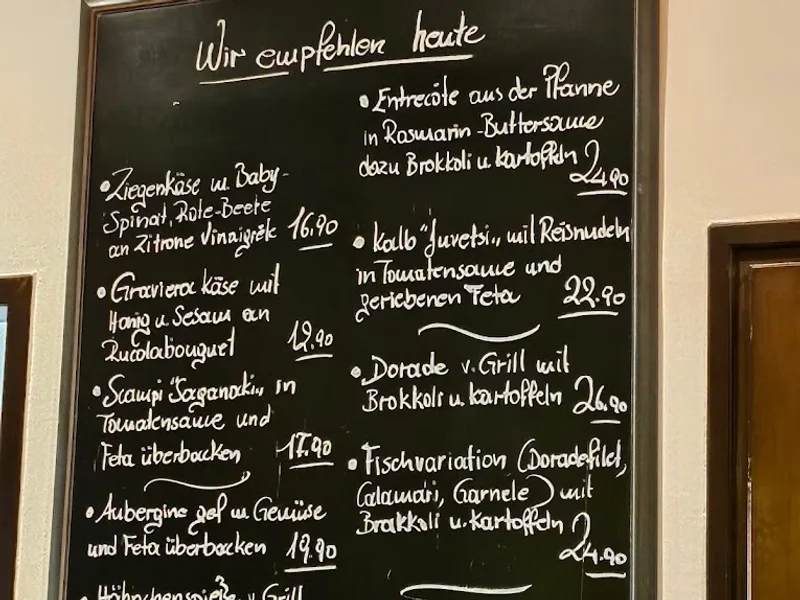 Wir empfehlen heute
• Ziegenkäse m. Baby-
Spinat, Rote-Beete
an Zitrone Vinaigrék 16,90
• Graviera käse mit
Honig u. Sesam an
Rucolabouquet 12.90
• Scampi "Saganaki„ in
Tomatensauce und
Feta überbacken 17.90
• Aubergine gef m Gemüse
und Feta überbacken 19.90
• Hähnchenspieße v. Grill
• Entrecôte aus der Pfanne
in Rosmarin-Buttersauce
dazu Brokkoli u. kartoffeln 24,90
• Kalb "Juvetsi„ mit Reisnudeln
in Tomatensauce und
geriebenen Feta 22.90
• Dorade v. Grill mit
Brokkoli u. kartoffeln 26,90
• Fischvariation (Doradefilet,
Calamari, Garnele) mit
Brokkoli u. kartoffeln
24.90